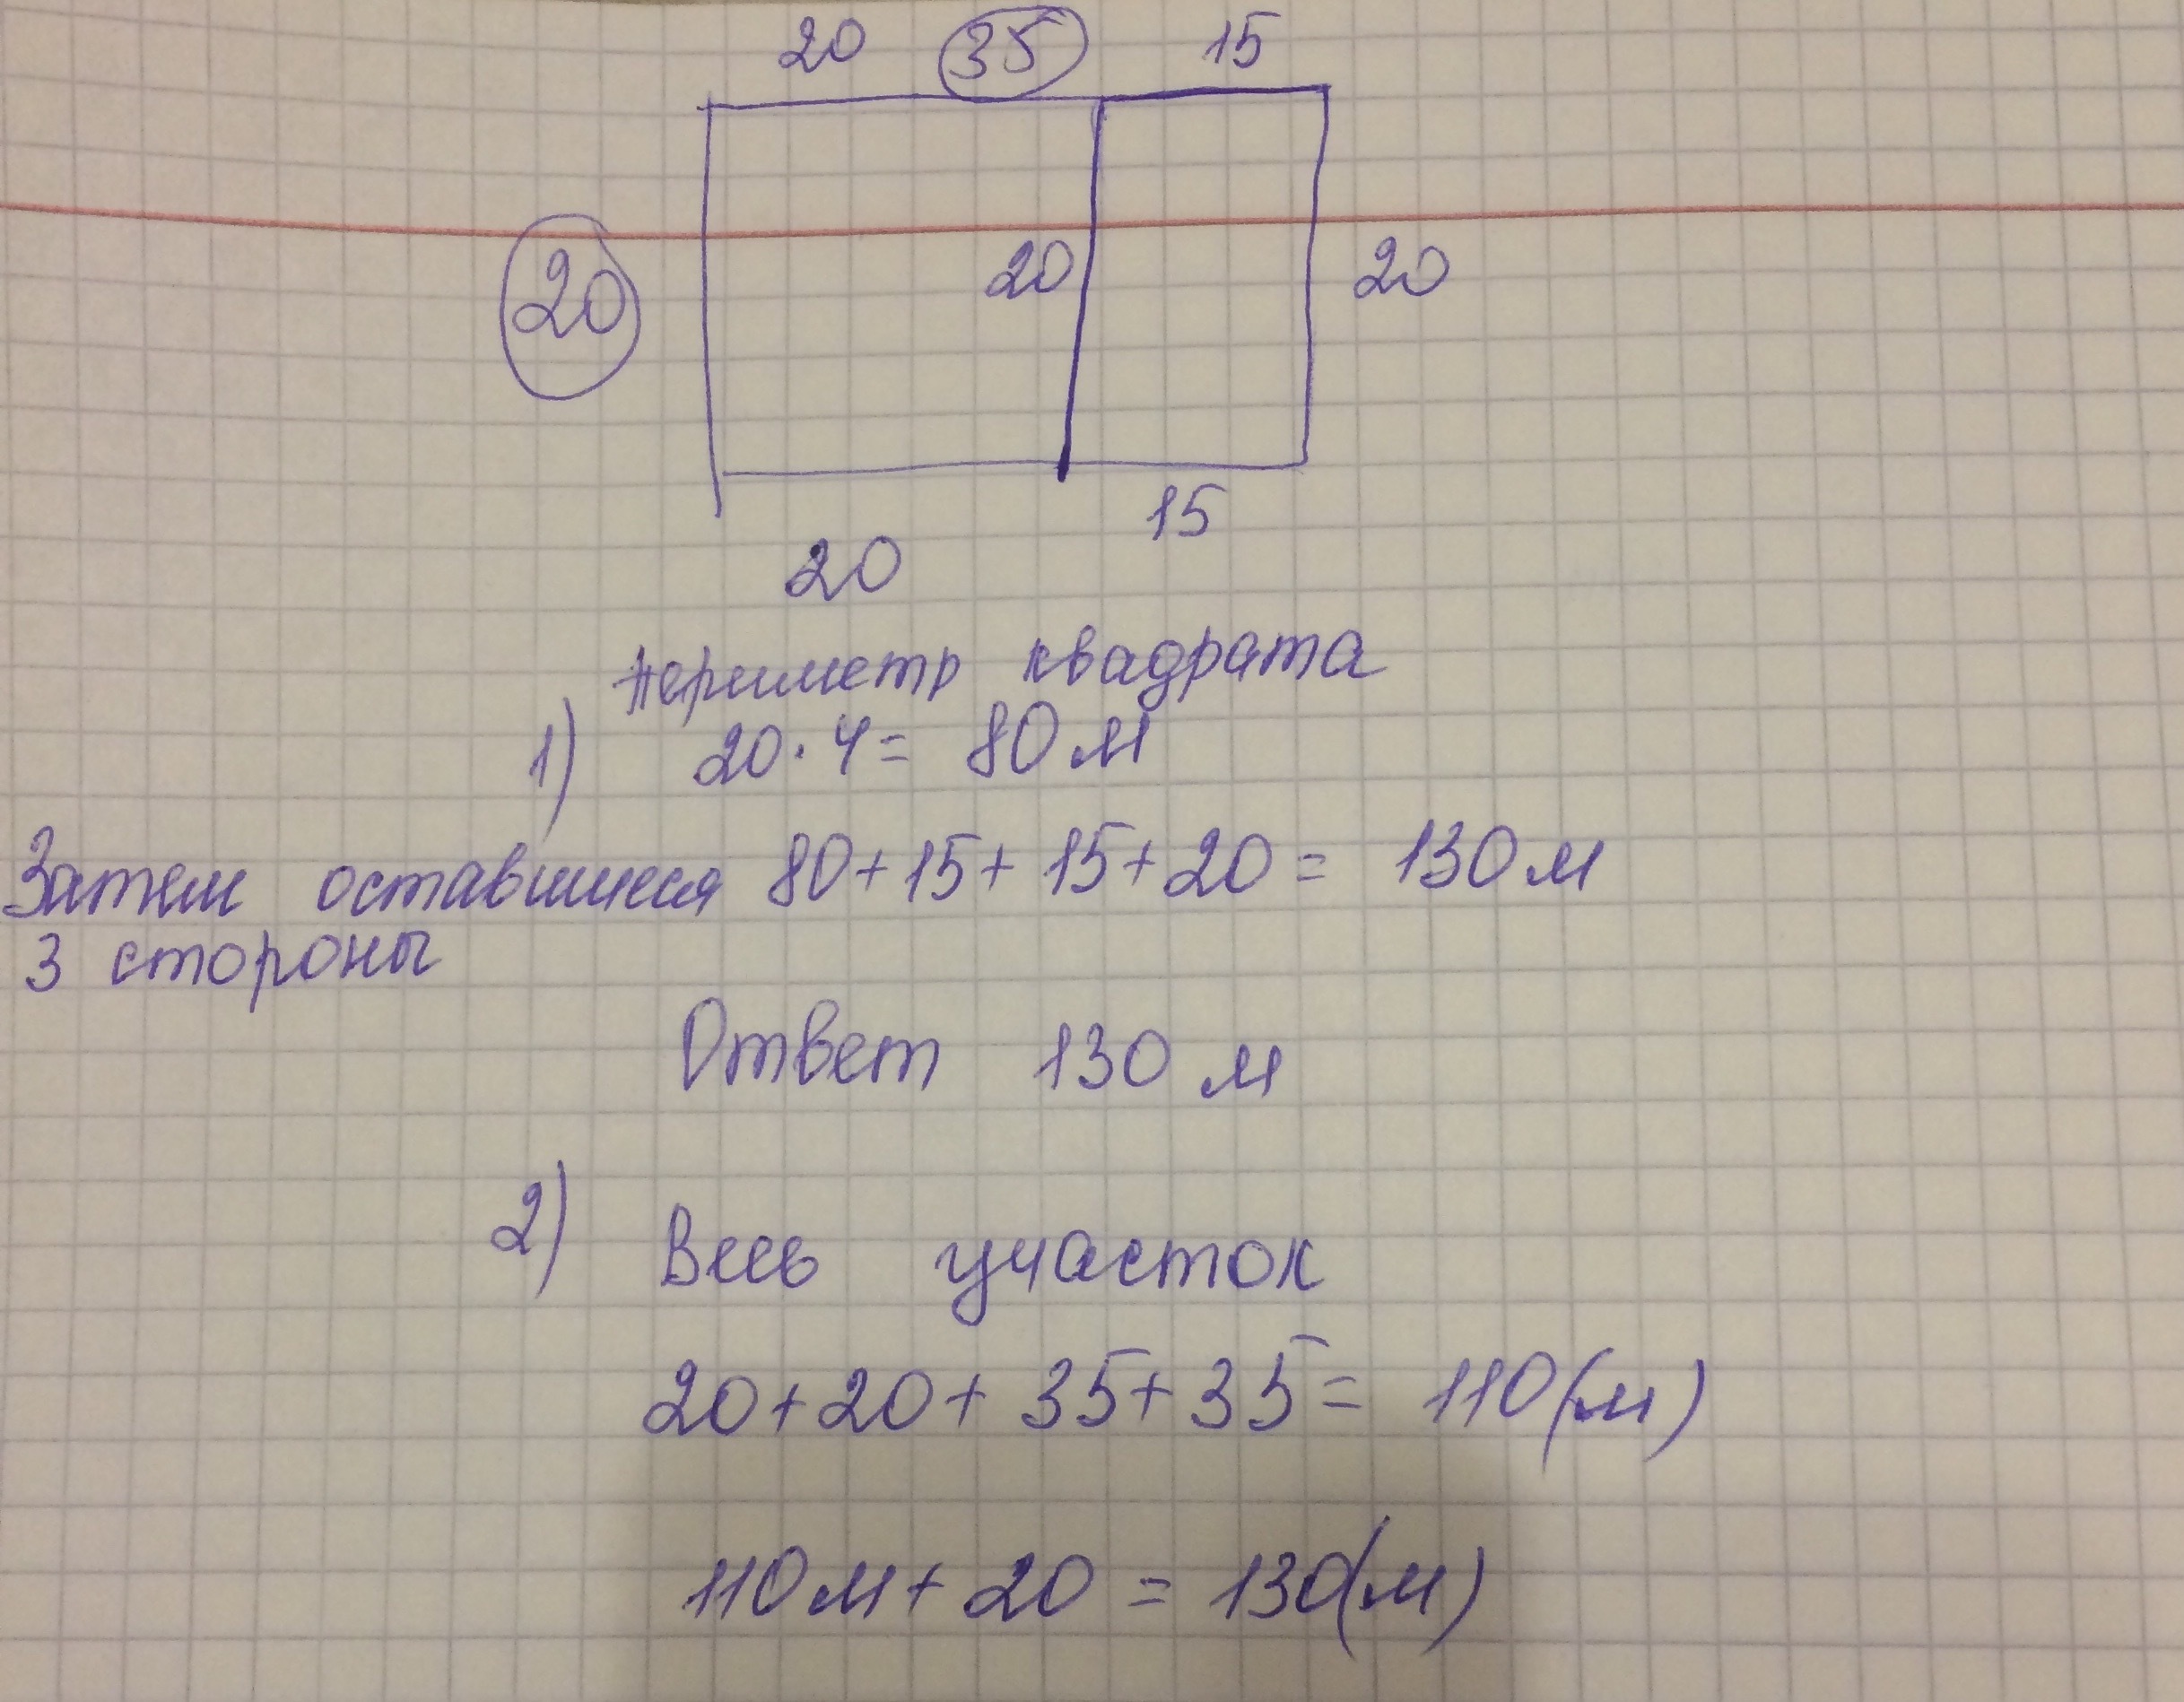 20 35 15
20 20 20
15
20
периметр квадрата
1) 20·4= 80м
Затем оставшиеся 80+15+15+20= 130м
3 стороны
Ответ 130 м
2) Весь участок
20+20+35+35= 110(м)
110м+20 = 130(м)